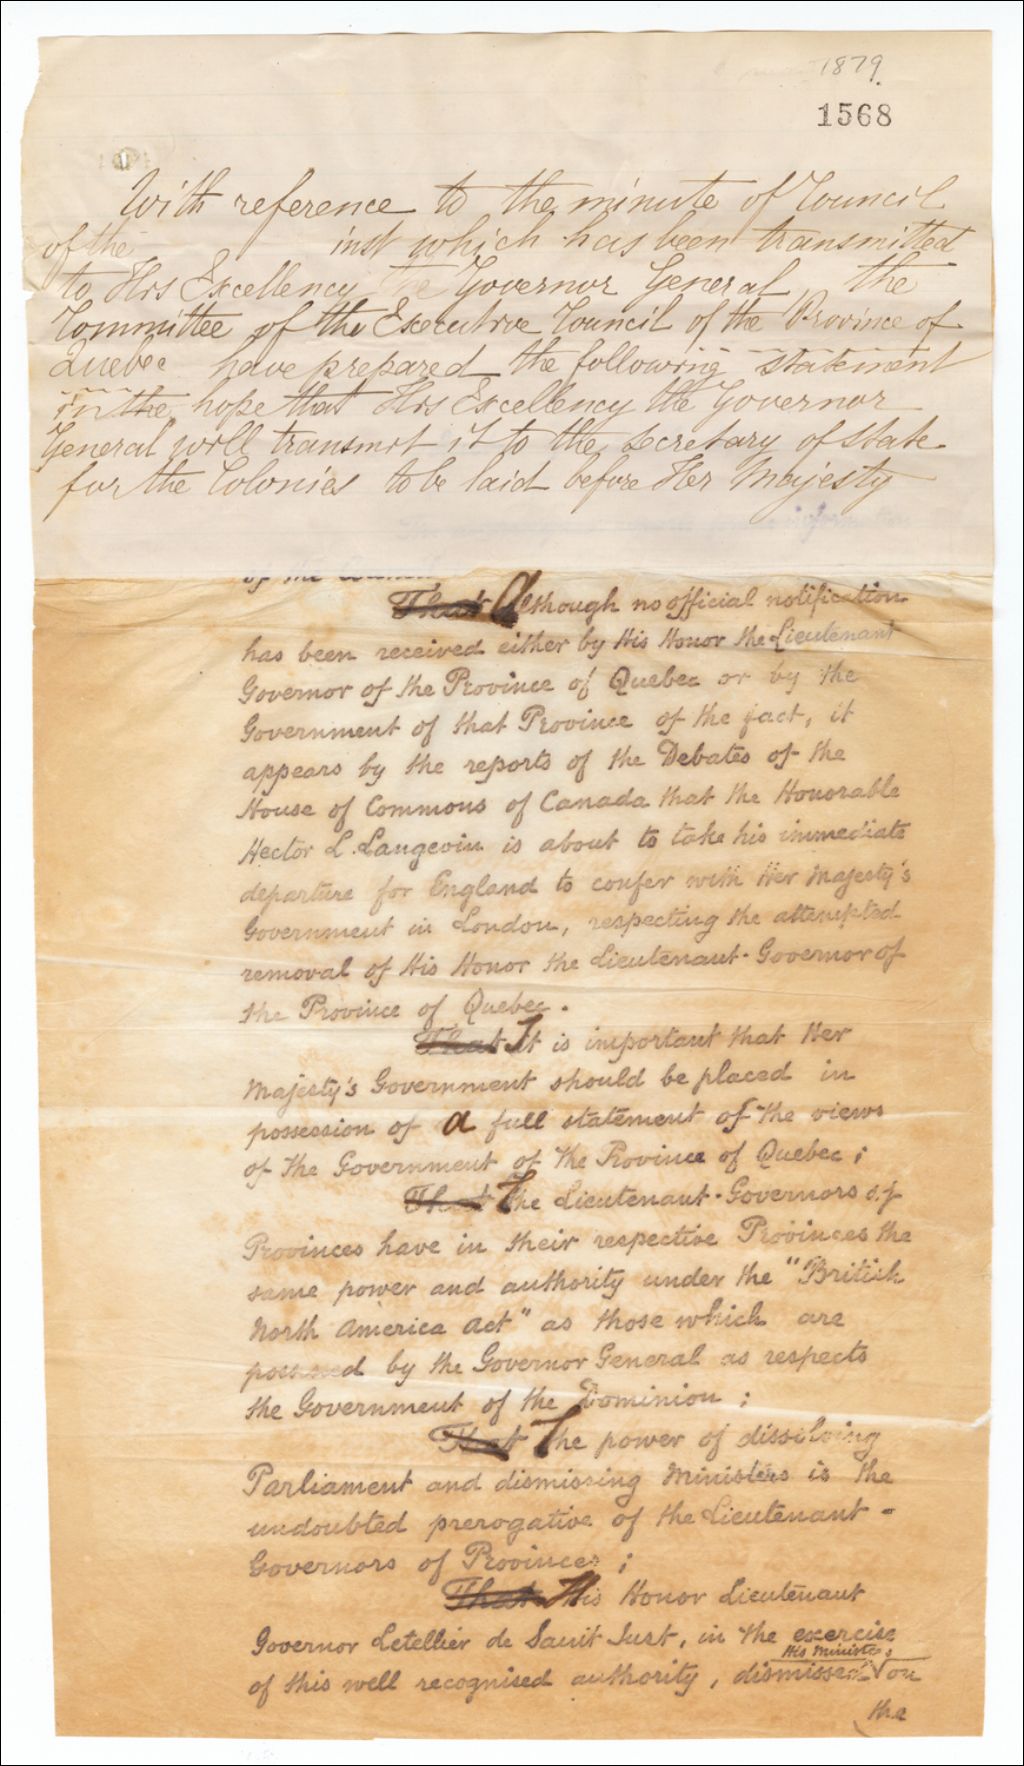 1879.
1568
With reference to the minute of Council
of the inst which has been transmitted
to His Excellency the Governor General, the
Committee of the Executive Council of the Province of
Quebec have prepared the following statement
in the hope that His Excellency the Governor
General will transmit it to the Secretary of State
for the Colonies to be laid before Her Majesty
of the Council
That Although no official notification
has been received either by His Honor the Lieutenant
Governor of the Province of Quebec or by the
Government of that Province of the fact, it
appears by the reports of the Debates of the
House of Commons of Canada that the Honorable
Hector L. Langevin is about to take his immediate
departure for England to confer with Her Majesty's
Government in London, respecting the attempted
removal of His Honor the Lieutenant-Governor of
the Province of Quebec.
That It is important that Her
Majesty's Government should be placed in
possession of a full statement of the views
of the Government of the Province of Quebec;
That The Lieutenant-Governors of
Provinces have in their respective Provinces the
same power and authority under the "British
North America Act" as those which are
possessed by the Governor General as respects
the Government of the Dominion;
That The power of dissolving
Parliament and dismissing Ministers is the
undoubted prerogative of the Lieutenant-
Governors of Provinces;
That His Honor Lieutenant
Governor Letellier de Saint Just, in the exercise
His Ministers
of this well recognised authority, dismissed √ on
the